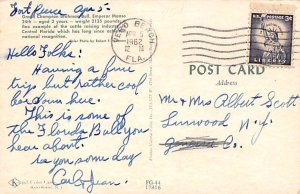 Fort Pierce Apr 5 -
Grand Champion Brahman Bull, Emperor Manso
24th - aged 3 years - weight 2135 pounds.
fine example of the cattle raising industry
Central Florida which has long since
national recognition.
Color Photo by
VERO BEACH
APR 5
12 M
1962
FLA.
3¢
LIBERTY
Hello Folks:
Having a fine
trip but rather cool
down here.
This is some of
the Florida Bull you
hear about.
See you some day
Carl & Jean
POST CARD
Address
Mr & Mrs Albert Scott
Linwood N.Y.
Genesee Co.
FG-44
17816